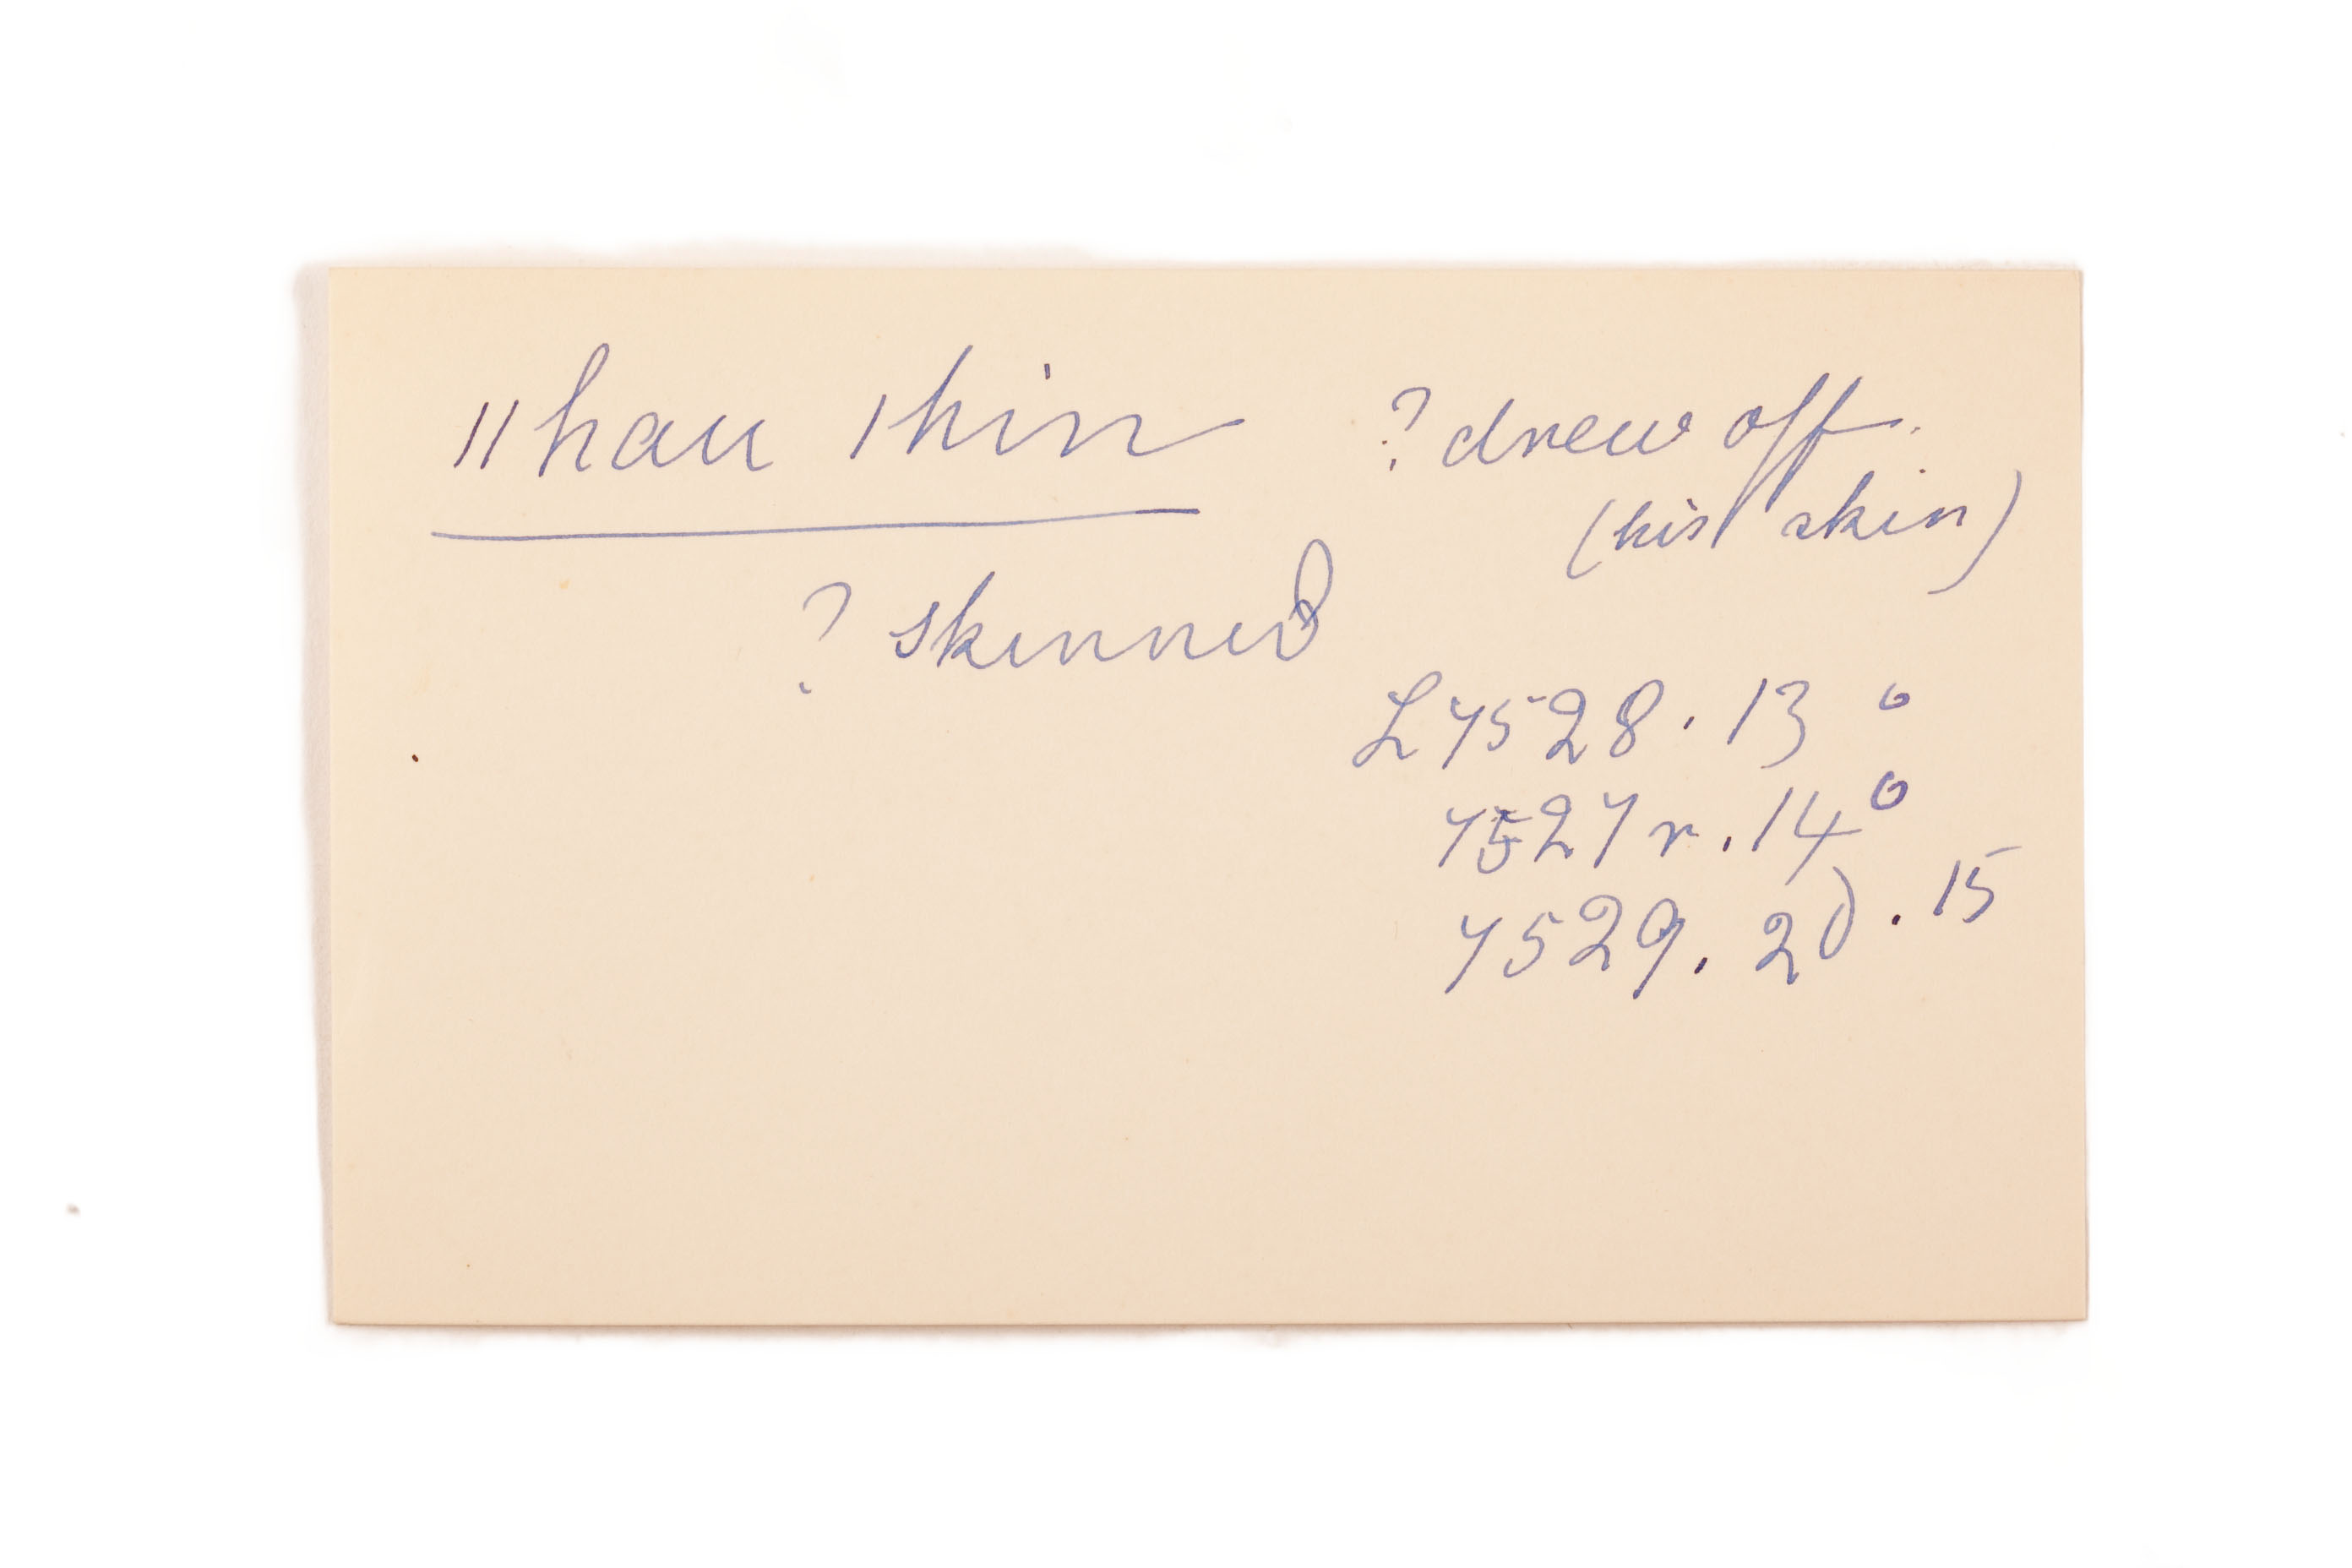 ǁhau ǀhin ? drew off.
(his skin)
? skinned
L 7528. 13 o
7527 r. 14 o
7529. 20. 15